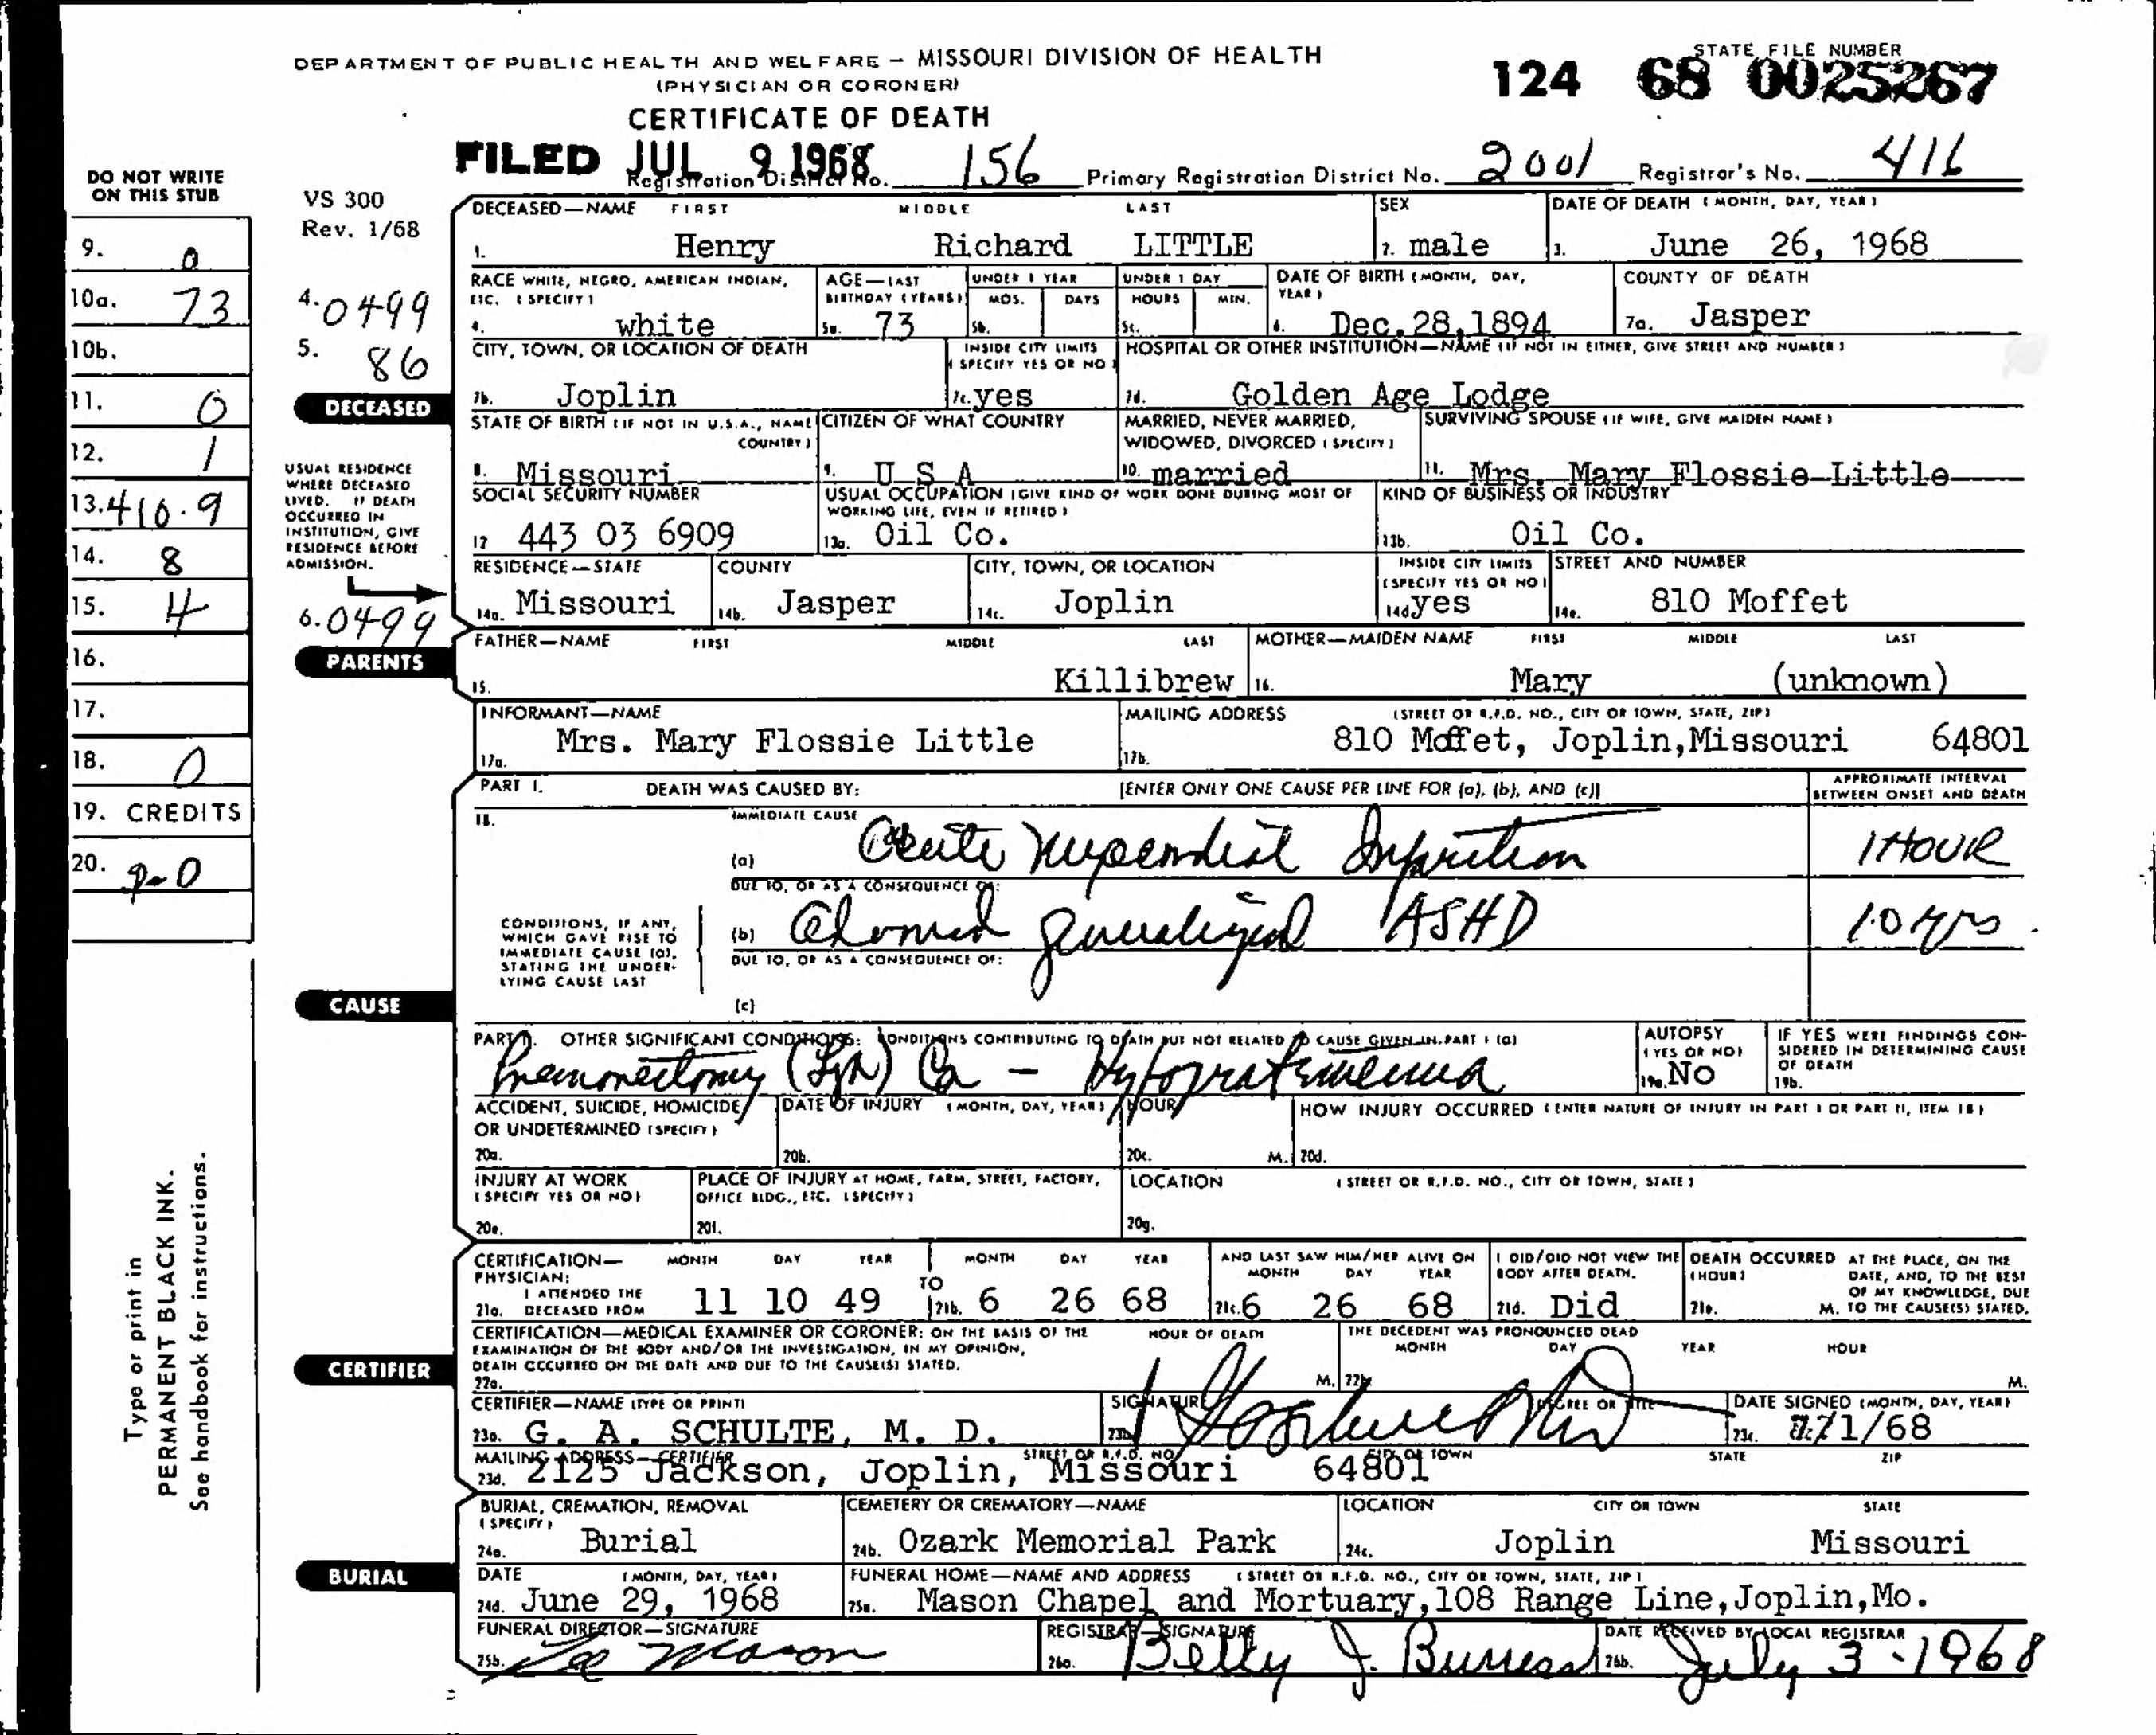 DEPARTMENT OF PUBLIC HEALTH AND WELFARE — MISSOURI DIVISION OF HEALTH
(PHYSICIAN OR CORONER)
CERTIFICATE OF DEATH
STATE FILE NUMBER
124 68 0025267
FILED JUL 9 1968 Registration District No. 156 Primary Registration District No. 2001 Registrar's No. 416
DO NOT WRITE
ON THIS STUB
9. 0
10a. 73
10b.
11. 0
12. 1
13. 410.9
14. 8
15. 4
16.
17.
18. 0
19. CREDITS
20.
Type or print in
PERMANENT BLACK INK.
See handbook for instructions.
VS 300
Rev. 1/68
4. 0499
5. 86
DECEASED
USUAL RESIDENCE
WHERE DECEASED
LIVED. IF DEATH
OCCURRED IN
INSTITUTION, GIVE
RESIDENCE BEFORE
ADMISSION.
6. 0499
PARENTS
CAUSE
CERTIFIER
BURIAL
DECEASED—NAME FIRST MIDDLE LAST SEX DATE OF DEATH (MONTH, DAY, YEAR)
1. Henry Richard LITTLE 2. male 3. June 26, 1968
RACE WHITE, NEGRO, AMERICAN INDIAN, AGE—LAST UNDER 1 YEAR UNDER 1 DAY DATE OF BIRTH (MONTH, DAY, COUNTY OF DEATH
ETC. (SPECIFY) BIRTHDAY (YEARS) MOS. DAYS HOURS MIN. YEAR)
4. white 5a. 73 5b. 5c. 6. Dec.28,1894 7a. Jasper
CITY, TOWN, OR LOCATION OF DEATH INSIDE CITY LIMITS HOSPITAL OR OTHER INSTITUTION—NAME (IF NOT IN EITHER, GIVE STREET AND NUMBER)
(SPECIFY YES OR NO)
7b. Joplin 7c. yes 7d. Golden Age Lodge
STATE OF BIRTH (IF NOT IN U.S.A., NAME CITIZEN OF WHAT COUNTRY MARRIED, NEVER MARRIED, SURVIVING SPOUSE (IF WIFE, GIVE MAIDEN NAME)
COUNTRY) WIDOWED, DIVORCED (SPECIFY)
8. Missouri 9. U S A 10. married 11. Mrs. Mary Flossie Little
SOCIAL SECURITY NUMBER USUAL OCCUPATION (GIVE KIND OF WORK DONE DURING MOST OF KIND OF BUSINESS OR INDUSTRY
WORKING LIFE, EVEN IF RETIRED)
12 443 03 6909 13a. Oil Co. 13b. Oil Co.
RESIDENCE—STATE COUNTY CITY, TOWN, OR LOCATION INSIDE CITY LIMITS STREET AND NUMBER
(SPECIFY YES OR NO)
14a. Missouri 14b. Jasper 14c. Joplin 14d. yes 14e. 810 Moffet
FATHER—NAME FIRST MIDDLE LAST MOTHER—MAIDEN NAME FIRST MIDDLE LAST
15. Killibrew 16. Mary (unknown)
INFORMANT—NAME MAILING ADDRESS (STREET OR R.F.D. NO., CITY OR TOWN, STATE, ZIP)
17a. Mrs. Mary Flossie Little 17b. 810 Moffet, Joplin,Missouri 64801
PART I. DEATH WAS CAUSED BY: [ENTER ONLY ONE CAUSE PER LINE FOR (a), (b), AND (c)] APPROXIMATE INTERVAL
BETWEEN ONSET AND DEATH
18. IMMEDIATE CAUSE
(a) Acute Myocardial Infarction 1 HOUR
DUE TO, OR AS A CONSEQUENCE OF:
CONDITIONS, IF ANY,
WHICH GAVE RISE TO
IMMEDIATE CAUSE (a),
STATING THE UNDER-
LYING CAUSE LAST
(b) Chronic generalized ASHD 10 yrs
DUE TO, OR AS A CONSEQUENCE OF:
(c)
PART II. OTHER SIGNIFICANT CONDITIONS: CONDITIONS CONTRIBUTING TO DEATH BUT NOT RELATED TO CAUSE GIVEN IN PART I (a) AUTOPSY IF YES WERE FINDINGS CON-
(YES OR NO) SIDERED IN DETERMINING CAUSE
OF DEATH
Pneumonectomy Ca - 19a. No 19b.
ACCIDENT, SUICIDE, HOMICIDE DATE OF INJURY (MONTH, DAY, YEAR) HOUR HOW INJURY OCCURRED (ENTER NATURE OF INJURY IN PART I OR PART II, ITEM 18)
OR UNDETERMINED (SPECIFY)
20a. 20b. 20c. M. 20d.
INJURY AT WORK PLACE OF INJURY AT HOME, FARM, STREET, FACTORY, LOCATION (STREET OR R.F.D. NO., CITY OR TOWN, STATE)
(SPECIFY YES OR NO) OFFICE BLDG., ETC. (SPECIFY)
20e. 20f. 20g.
CERTIFICATION— MONTH DAY YEAR MONTH DAY YEAR AND LAST SAW HIM/HER ALIVE ON I DID/DID NOT VIEW THE DEATH OCCURRED AT THE PLACE, ON THE
PHYSICIAN: TO MONTH DAY YEAR BODY AFTER DEATH. (HOUR) DATE, AND, TO THE BEST
I ATTENDED THE OF MY KNOWLEDGE, DUE
21a. DECEASED FROM 11 10 49 21b. 6 26 68 21c. 6 26 68 21d. Did 21e. M. TO THE CAUSE(S) STATED.
CERTIFICATION—MEDICAL EXAMINER OR CORONER: ON THE BASIS OF THE HOUR OF DEATH THE DECEDENT WAS PRONOUNCED DEAD
EXAMINATION OF THE BODY AND/OR THE INVESTIGATION, IN MY OPINION, MONTH DAY YEAR HOUR
DEATH OCCURRED ON THE DATE AND DUE TO THE CAUSE(S) STATED.
22a. M. 22b. M.
CERTIFIER—NAME (TYPE OR PRINT) SIGNATURE DEGREE OR TITLE DATE SIGNED (MONTH, DAY, YEAR)
23a. G. A. SCHULTE, M. D. 23b. 23c. 7/1/68
MAILING ADDRESS—CERTIFIER STREET OR R.F.D. NO. CITY OR TOWN STATE ZIP
23d. 2125 Jackson, Joplin, Missouri 64801
BURIAL, CREMATION, REMOVAL CEMETERY OR CREMATORY—NAME LOCATION CITY OR TOWN STATE
(SPECIFY)
24a. Burial 24b. Ozark Memorial Park 24c. Joplin Missouri
DATE (MONTH, DAY, YEAR) FUNERAL HOME—NAME AND ADDRESS (STREET OR R.F.D. NO., CITY OR TOWN, STATE, ZIP)
24d. June 29, 1968 25a. Mason Chapel and Mortuary,108 Range Line,Joplin,Mo.
FUNERAL DIRECTOR—SIGNATURE REGISTRAR—SIGNATURE DATE RECEIVED BY LOCAL REGISTRAR
25b. Mason 26a. Betty J. Burress 26b. July 3 - 1968